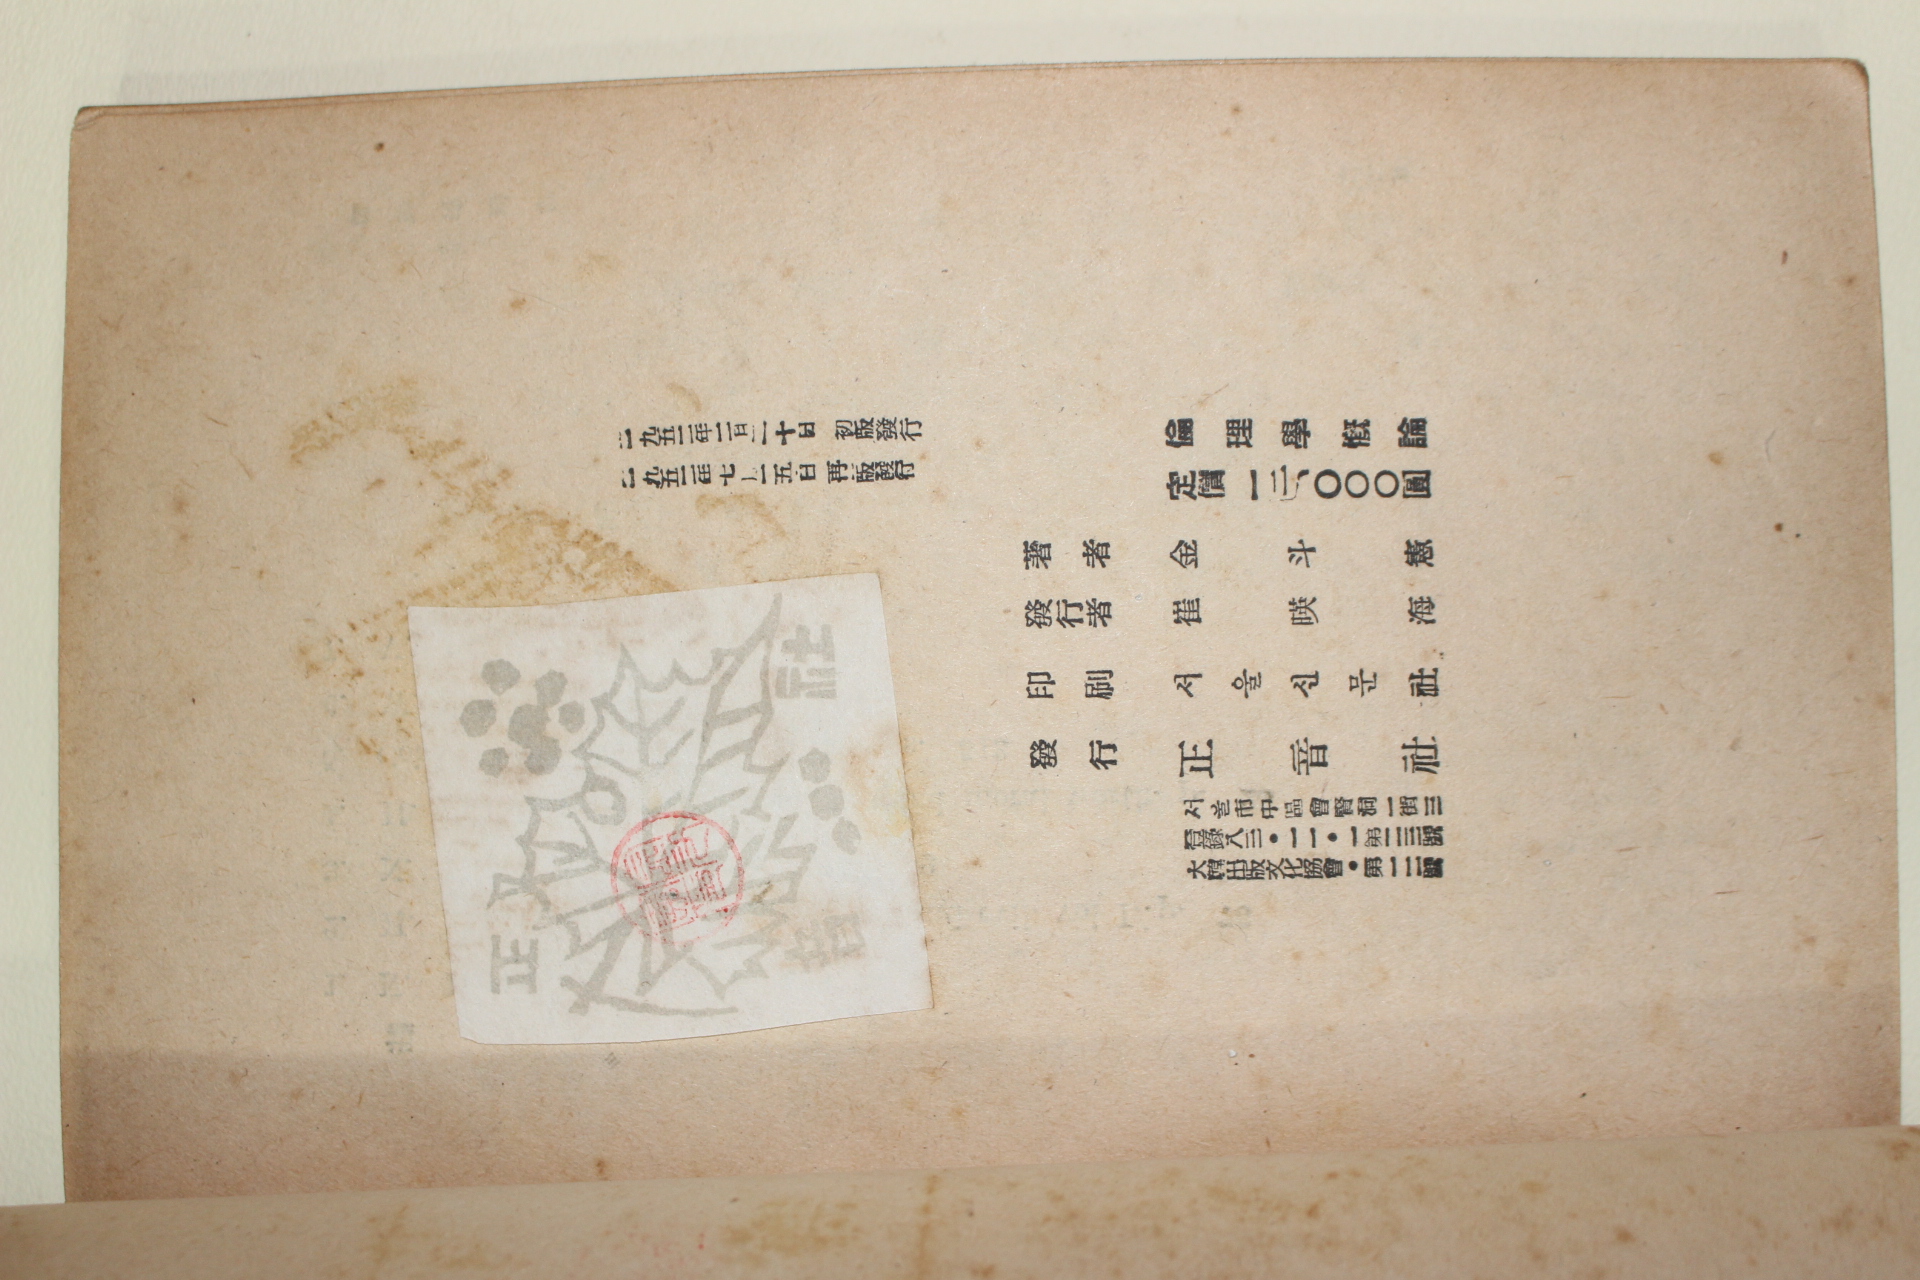 一九五二年二月二十日 初版發行
一九五二年七月一五日 再版發行
倫理學槪論
定價 一三、〇〇〇圓
著者 金斗憲
發行者 崔暎海
印刷 서울신문社
發行 正音社
서울市中區會賢洞一街三
登錄八三・一一・一第
大韓出版文化協會・第
正音社